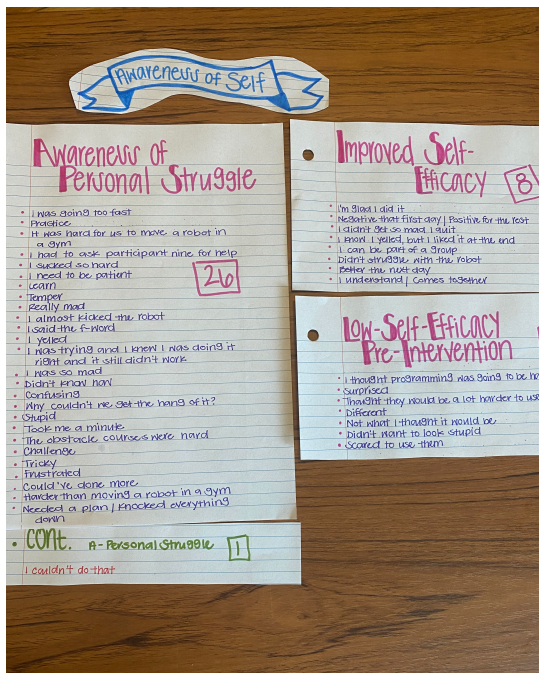 Awareness of Self
Awareness of
Personal Struggle
• I was going too fast
• Practice
• It was hard for us to move a robot in
a gym
• I had to ask participant nine for help
• I sucked so hard
• I need to be patient
26
• Learn
• Temper
• Really mad
• I almost kicked the robot
• I said the f-word
• I yelled
• I was trying and I knew I was doing it
right and it still didn't work
• I was so mad
• Didn't know how
• Confusing
• Why couldn't we get the hang of it?
• Stupid
• Took me a minute
• The obstacle courses were hard
• Challenge
• Tricky
• Frustrated
• Could've done more
• Harder than moving a robot in a gym
• Needed a plan / Knocked everything
down
• CONT. A-Personal Struggle 1
I couldn't do that
Improved Self-
Efficacy 8
• I'm glad I did it
• Negative that first day / Positive for the rest
• I didn't get so mad I quit
• I know I yelled, but I liked it at the end
• I can be part of a group
• Didn't struggle with the robot
• Better the next day
• I understand / Comes together
Low-Self-Efficacy
Pre-Intervention
• I thought programming was going to be ha
• Surprised
• Thought they would be a lot harder to use
• Different
• Not what I thought it would be
• Didn't want to look stupid
• Scared to use them